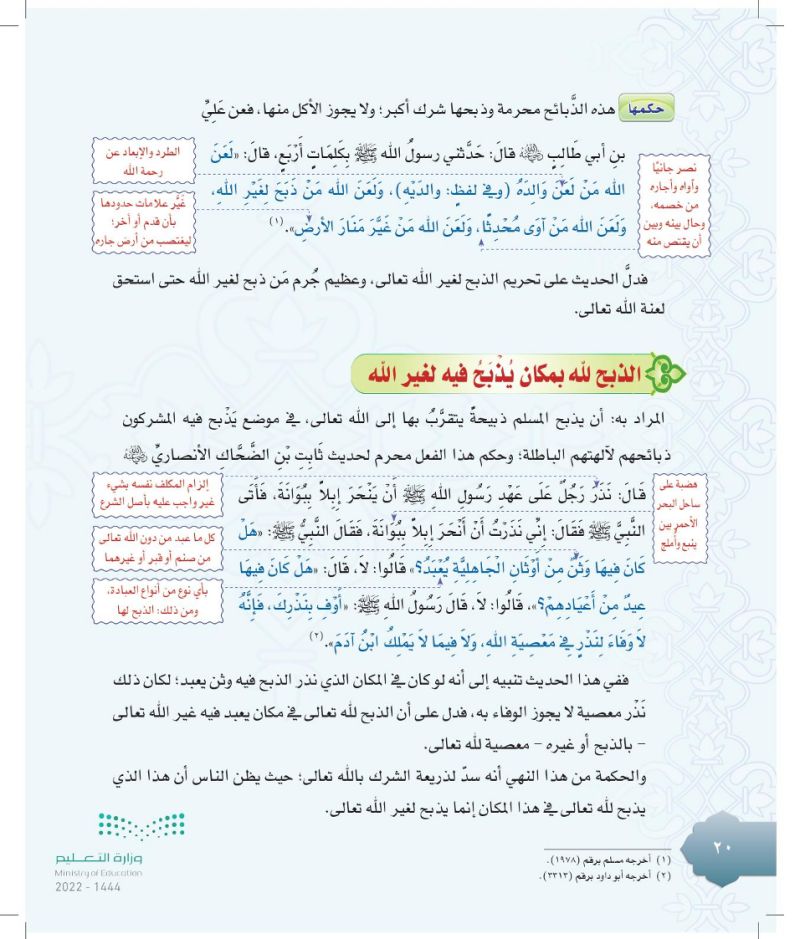 حكمها هذه الذَّبائح محرمة وذبحها شرك أكبر؛ ولا يجوز الأكل منها، فعن عَلِيِّ
بنِ أبي طَالِبٍ رضي الله عنه قالَ: حَدَّثني رسولُ الله ﷺ بكَلِمَاتٍ أَرْبَعٍ، قالَ: «لَعَنَ
الله مَنْ لَعَنَ وَالِدَهُ (وفي لفظٍ: والديْهِ)، وَلَعَنَ الله مَنْ ذَبَحَ لِغَيْرِ اللهِ،
وَلَعَنَ الله مَنْ آوَى مُحْدِثًا، وَلَعَنَ الله مَنْ غَيَّرَ مَنَارَ الأرْضِ».(١)
الطرد والإبعاد عن
رحمة الله
غَيَّر علامات حدودها
بأن قدم أو أخر؛
ليغتصب من أرض جاره
نصر جانيًا
وآواه وأجاره
من خصمه،
وحال بينه وبين
أن يقتص منه
فدلَّ الحديث على تحريم الذبح لغير الله تعالى، وعظيم جُرم مَن ذبح لغير الله حتى استحق
لعنة الله تعالى.
الذبح لله بمكان يُذْبَحُ فيه لغير الله
المراد به: أن يذبح المسلم ذبيحةً يتقرَّبُ بها إلى الله تعالى، في موضع يَذْبح فيه المشركون
ذبائحهم لآلهتهم الباطلة؛ وحكم هذا الفعل محرم لحديث ثَابِتِ بْنِ الضَّحَّاكِ الأنصاريِّ رضي الله عنه
قَالَ: نَذَرَ رَجُلٌ عَلَى عَهْدِ رَسُولِ اللهِ ﷺ أَنْ يَنْحَرَ إِبِلاً بِبُوَانَةَ، فَأَتَى
النَّبِيَّ ﷺ فَقَالَ: إِنِّي نَذَرْتُ أَنْ أَنْحَرَ إِبِلاً بِبُوَانَةَ، فَقَالَ النَّبِيُّ ﷺ: «هَلْ
كَانَ فِيهَا وَثَنٌ مِنْ أَوْثَانِ الْجَاهِلِيَّةِ يُعْبَدُ؟» قَالُوا: لَا، قَالَ: «هَلْ كَانَ فِيهَا
عِيدٌ مِنْ أَعْيَادِهِمْ؟»، قَالُوا: لَا، قَالَ رَسُولُ اللهِ ﷺ: «أَوْفِ بِنَذْرِكَ، فَإِنَّهُ
لَا وَفَاءَ لِنَذْرٍ فِي مَعْصِيَةِ اللهِ، وَلَا فِيمَا لَا يَمْلِكُ ابْنُ آدَمَ».(٢)
إلزام المكلف نفسه بشيء
غير واجب عليه بأصل الشرع
كل ما عبد من دون الله تعالى
من صنم أو قبر أو غيرهما
بأي نوع من أنواع العبادة،
ومن ذلك: الذبح لها
هضبة على
ساحل البحر
الأحمر بين
ينبع وأملج
ففي هذا الحديث تنبيه إلى أنه لو كان في المكان الذي نذر الذبح فيه وثن يعبد؛ لكان ذلك
نَذْر معصية لا يجوز الوفاء به، فدل على أن الذبح لله تعالى في مكان يعبد فيه غير الله تعالى
– بالذبح أو غيره – معصية لله تعالى.
والحكمة من هذا النهي أنه سدٌ لذريعة الشرك بالله تعالى؛ حيث يظن الناس أن هذا الذي
يذبح لله تعالى في هذا المكان إنما يذبح لغير الله تعالى.
(١) أخرجه مسلم برقم (١٩٧٨).
(٢) أخرجه أبو داود برقم (٣٣١٣).
٢٠
وزارة التعليم
Ministry of Education
2022 - 1444